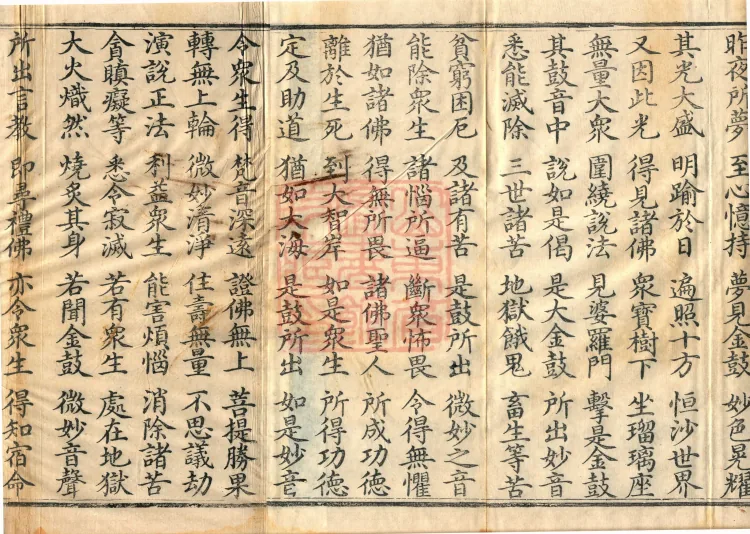 昨夜所夢 至心憶持 夢見金鼓 妙色晃耀
其光大盛 明踰於日 遍照十方 恒沙世界
又因此光 得見諸佛 衆寶樹下 坐瑠璃座
無量大衆 圍繞說法 見婆羅門 擊是金鼓
其鼓音中 說如是偈 是大金鼓 所出妙音
悉能滅除 三世諸苦 地獄餓鬼 畜生等苦
貧窮困厄 及諸有苦 是鼓所出 微妙之音
能除衆生 諸惱所逼 斷衆怖畏 令得無懼
猶如諸佛 得無所畏 諸佛聖人 所成功德
離於生死 到大智岸 如是衆生 所得功德
定及助道 猶如大海 是鼓所出 如是妙音
令衆生得 梵音深遠 證佛無上 菩提勝果
轉無上輪 微妙清淨 住壽無量 不思議劫
演說正法 利益衆生 能害煩惱 消除諸苦
貪瞋癡等 悉令寂滅 若有衆生 處在地獄
大火熾然 燒炙其身 若聞金鼓 微妙音聲
所出言教 即尋禮佛 亦令衆生 得知宿命